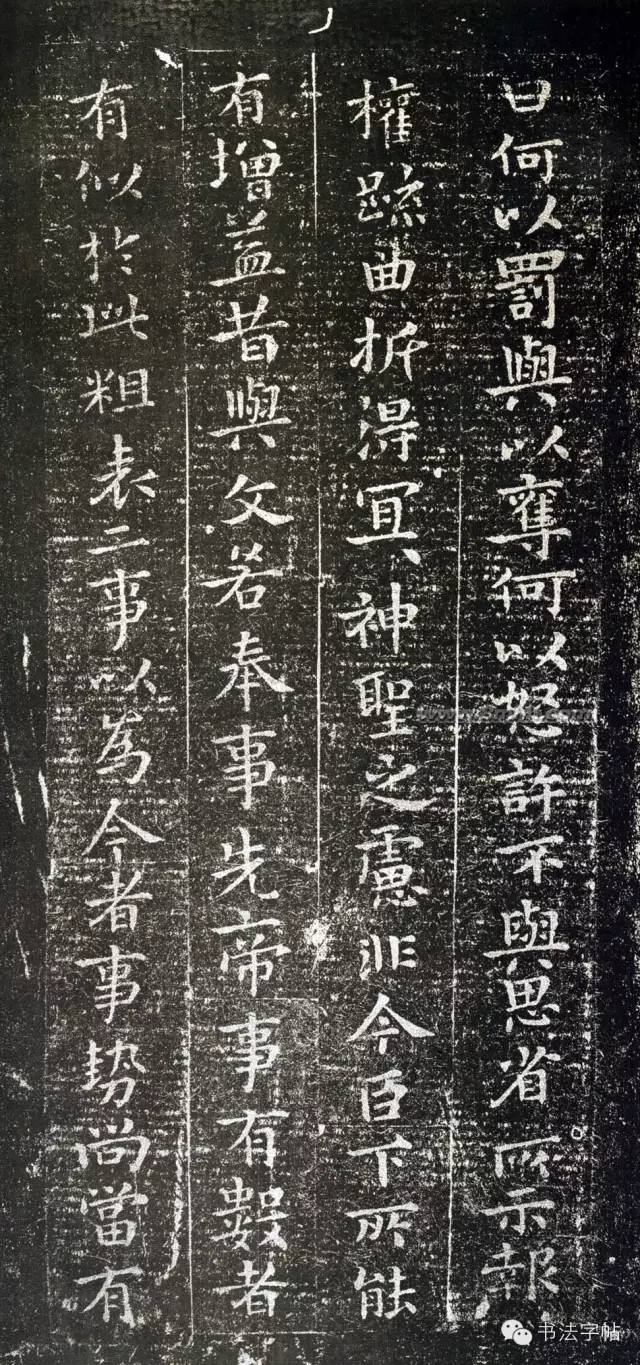 曰何以罰與以奪何以怒許不與思省所示報
權疏曲折得冝神聖之慮非今臣下所能
有增益昔與文若奉事先帝事有數者
有似於此粗表二事以為今者事勢尚當有
书法字帖